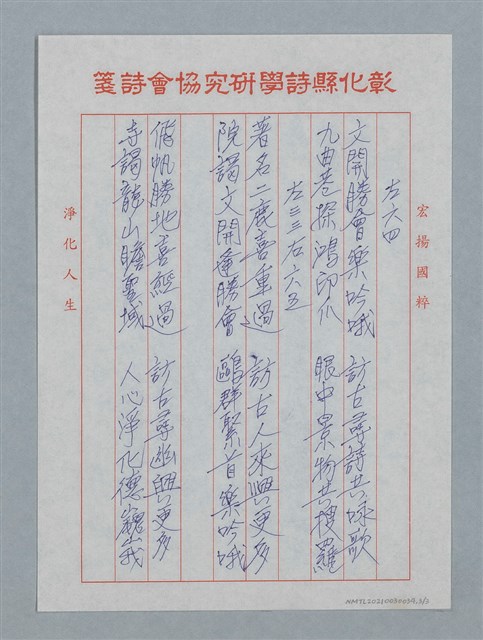 彰化縣詩學研究協會詩箋
宏揚國粹
左六四
文開勝會樂吟哦 訪古尋詩共咏歌
九曲巷探鴻印爪 眼中景物共搜羅
左三三右六五
著名二鹿喜重過 訪古人來興更多
院謁文開逢勝會 鷗群繫首樂吟哦
偕帆勝地喜經過 訪古尋幽興更多
寺謁龍山瞻聖域 人心淨化德巍峨
淨化人生
NMTL20210030034.3/3